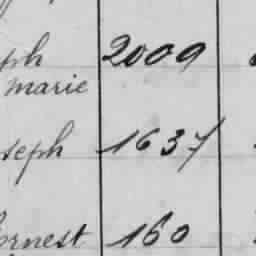 ph 2009
marie
seph 1637
ernest 160